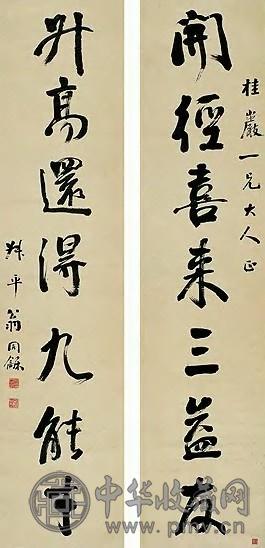 桂巖一兄大人正
開徑喜来三益友
升高還得九能才
叔平翁同龢
中华收藏网